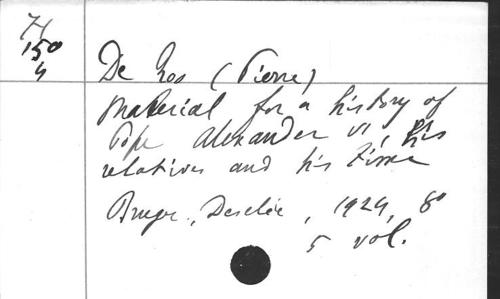 H
150
4
De Roo (Pierre)
Material for a history of
Pope Alexander VI, his
relatives and his time
Bruges, Desclée, 1924, 8º
5 vol.